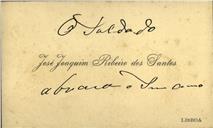 O Soldado
José Joaquim Ribeiro dos Santos
abraça o
LISBOA